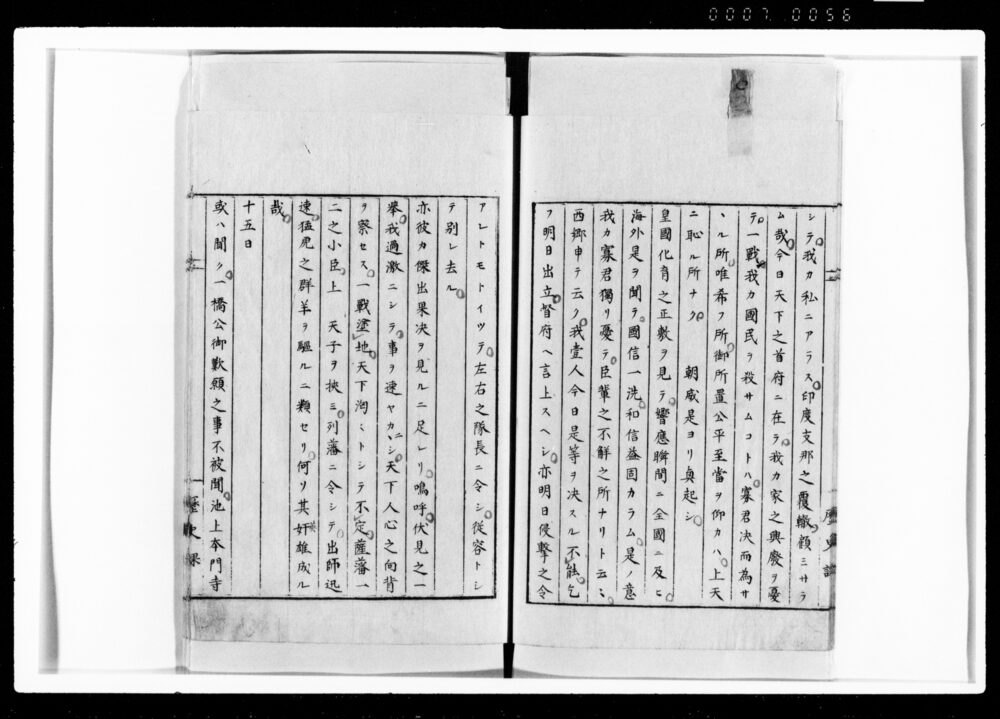 0007 0056
シラ我カ私ニアラス印度支那之覆轍顧ミサラ
ム哉今日天下之首府ニ在ラ我カ家之興廢ヲ憂
テ一戰我カ國民ヲ殺サムコトハ寡君決而為サ
ヽル所唯希フ所御所置公平至當ヲ仰カハ上天
ニ恥ル所ナク 朝威是ヨリ興起シ
皇國化育之正敷ヲ見ラ響應瞬間ニ全國ニ及ヒ
海外是ヲ聞ラ國信一洗和信益固カラム是ノ意
我カ寡君獨リ憂ラ臣輩之不解之所ナリト云ミ
西郷申テ云ク我壹人今日是等ヲ決スル不能乞
フ明日出立督府ヘ言上スヘシ亦明日侵擊之令
アレトモトイツテ左右之隊長ニ令シ從容トシ
テ別レ去ル
亦彼カ傑出果決ヲ見ルニ足レリ嗚呼伏見之一
擧我過激ニシラ事ヲ速ヤカニシ天下人心之向背
ヲ察セス一戰塗地天下洶ミトシラ不定薩藩一
二之小臣上 天子ヲ挾ミ列藩ニ令シテ出師迅
速猛虎之群羊ヲ驅ルニ類セリ何ソ其奸雄成ル
哉
十五日
或ハ聞ク一橋公御歎願之事不被聞池上本門寺
歷史課